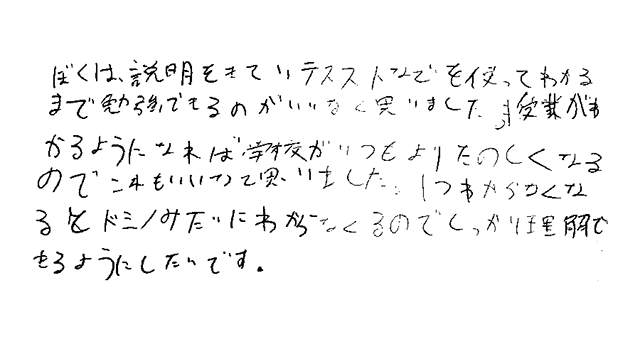 ぼくは、説明をきていテスストなでを使ってわかる
まで勉強できるのがいいなく思いました。授業がわ
かるようになれば学校がいつもよりたのしくなる
のでこれもいいなって思いました。1つわからなくな
るとドミノみたいにわからなくるのでしっかり理解で
きるようにしたいです。